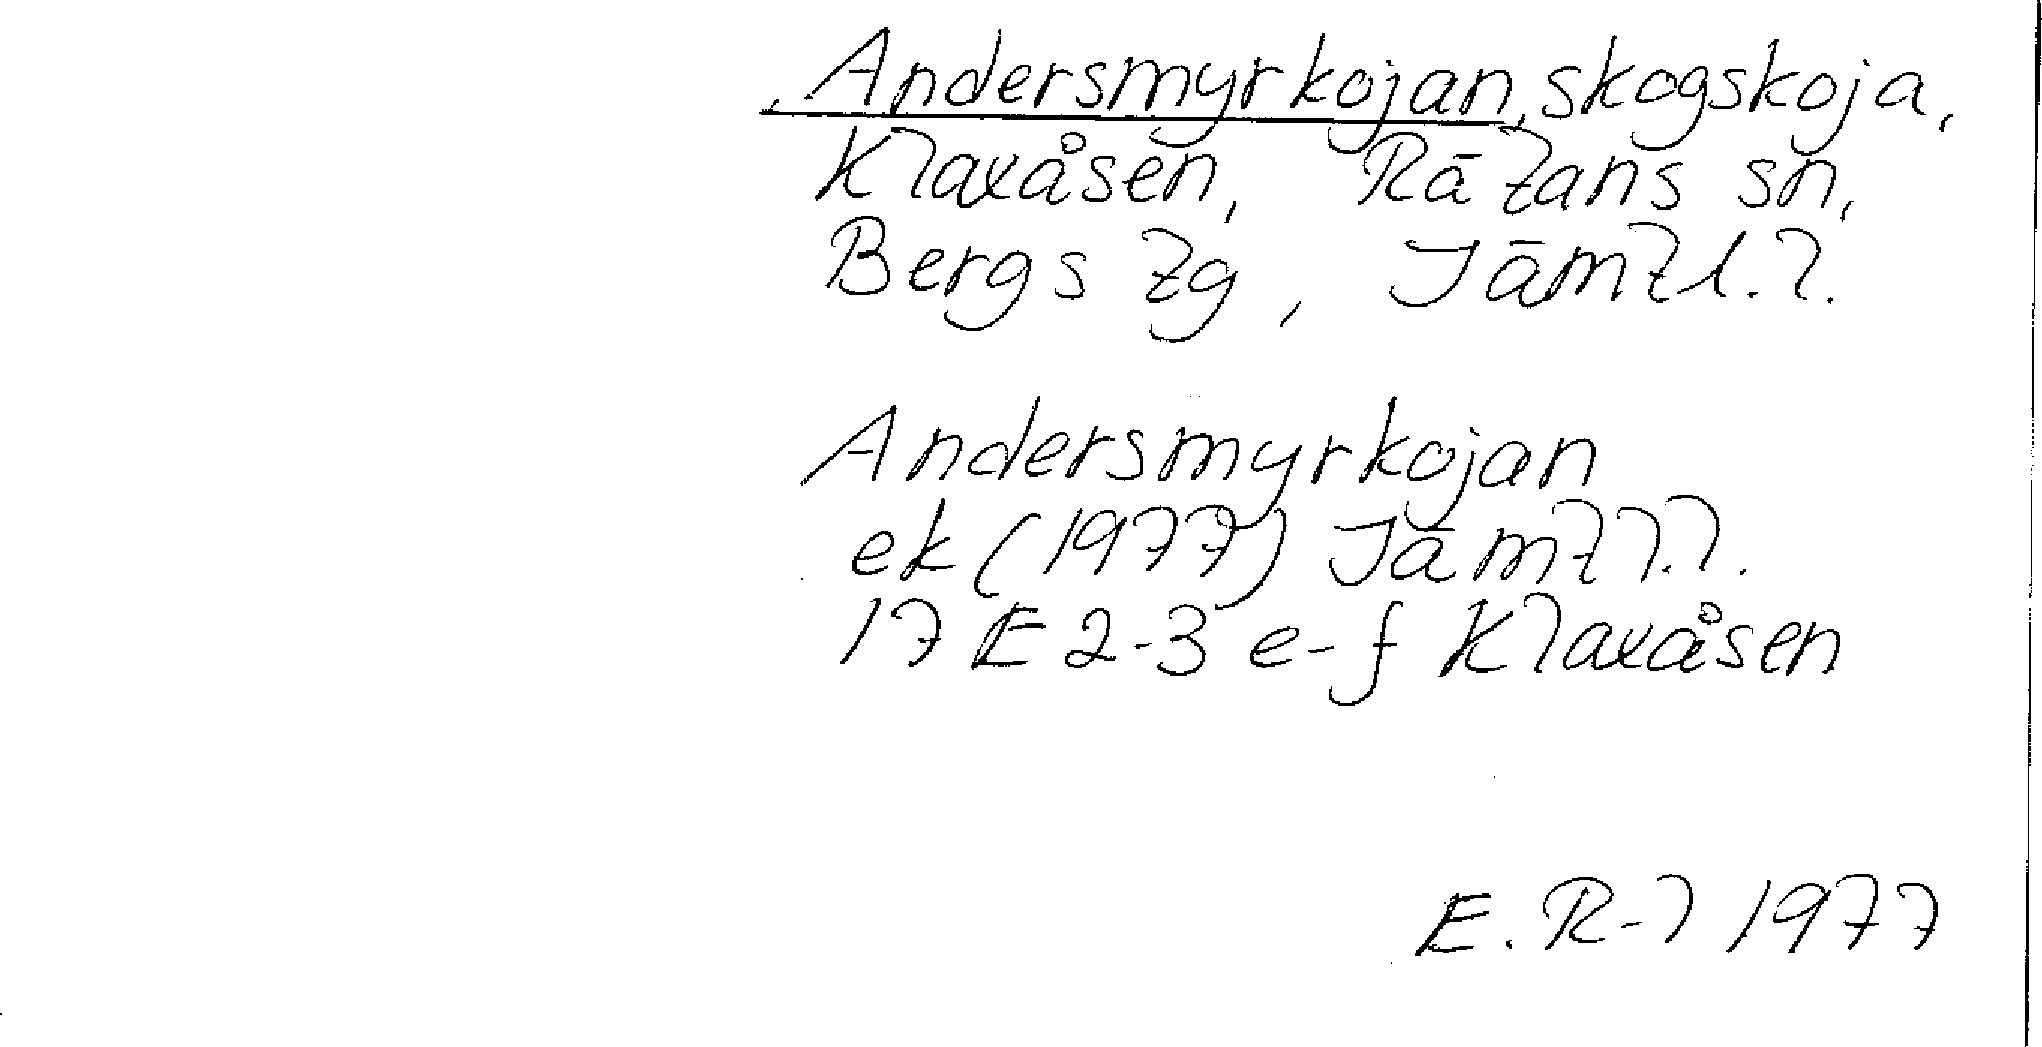 Andersmyrkojan, skogskoja,
Klaxåsen, Rätans sn,
Bergs tg, Jämtl. l.
Andersmyrkojan
ek (1977) Jämtl. l.
17 E 2-3 e-f Klaxåsen
E. R-l 1977